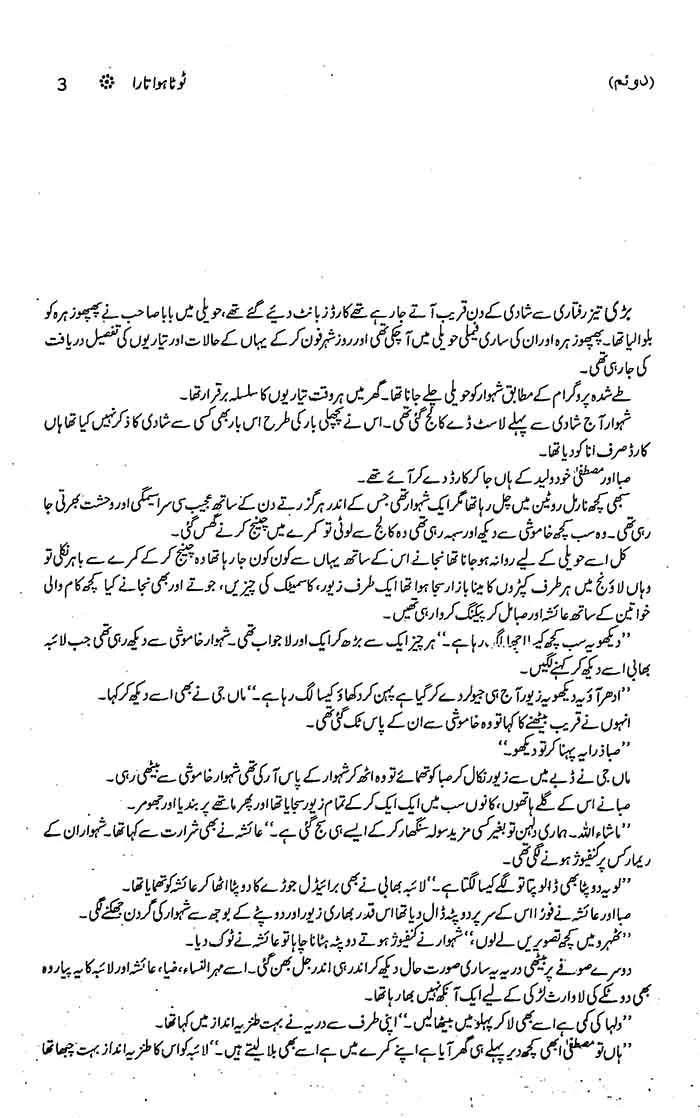 (دوئم) ٹوٹا ہوا تارا ❋ 3
بڑی تیز رفتاری سے شادی کے دن قریب آتے جا رہے تھے کارڈز بانٹ دیئے گئے تھے، حویلی میں بابا صاحب نے پھپھو زہرہ کو
بلوا لیا تھا۔ پھپھو زہرہ اور ان کی ساری فیملی حویلی میں آ چکی تھی اور روز شہر فون کر کے یہاں کے حالات اور تیاریوں کی تفصیل دریافت
کی جا رہی تھی۔
طے شدہ پروگرام کے مطابق شہوار کو حویلی چلے جانا تھا۔ گھر میں ہر وقت تیاریوں کا سلسلہ برقرار تھا۔
شہوار آج شادی سے پہلے لاسٹ ڈے کالج گئی تھی۔ اس نے پچھلی بار کی طرح اس بار بھی کسی سے شادی کا ذکر نہیں کیا تھا ہاں
کارڈ صرف انا کو دیا تھا۔
صبا اور مصطفیٰ خود ولید کے ہاں جا کر کارڈ دے کر آئے تھے۔
سبھی کچھ نارمل روٹین میں چل رہا تھا مگر ایک شہوار تھی جس کے اندر ہر گزرتے دن کے ساتھ عجیب سی سراسیمگی اور وحشت بھرتی جا
رہی تھی۔ وہ سب کچھ خاموشی سے دیکھ اور سہہ رہی تھی وہ کالج سے لوٹی تو کمرے میں چینج کرنے گھس گئی۔
کل اسے حویلی کے لیے روانہ ہو جانا تھا نجانے اس کے ساتھ یہاں سے کون کون جا رہا تھا وہ چینج کر کے کمرے سے باہر نکلی تو
وہاں لاؤنج میں ہر طرف کپڑوں کا مینا بازار سجا ہوا تھا ایک طرف زیور، کاسمیٹک کی چیزیں، جوتے اور بھی نجانے کیا کچھ کام والی
خواتین کے ساتھ عائشہ اور صبا مل کر پیکنگ کروا رہی تھیں۔
’’دیکھو یہ سب کچھ کیسا اچھا لگ رہا ہے۔‘‘ ہر چیز ایک سے بڑھ کر ایک اور لاجواب تھی۔ شہوار خاموشی سے دیکھ رہی تھی جب لائبہ
بھابی اسے دیکھ کر کہنے لگیں۔
’’ادھر آؤ یہ دیکھو یہ زیور آج ہی جیولر دے کر گیا ہے پہن کر دکھاؤ کیسا لگ رہا ہے۔‘‘ ماں جی نے بھی اسے دیکھ کر کہا۔
انہوں نے قریب بیٹھنے کا کہا تو وہ خاموشی سے ان کے پاس ٹک گئی تھی۔
’’صبا ذرا یہ پہنا کر تو دیکھو۔‘‘
ماں جی نے ڈبے میں سے زیور نکال کر صبا کو تھمائے تو وہ اٹھ کر شہوار کے پاس آ رکی تھی شہوار خاموشی سے بیٹھی رہی۔
صبا نے اس کے گلے ہاتھوں، کانوں سب میں ایک ایک کر کے تمام زیور سجایا تھا اور پھر ماتھے پر بندیا اور جھومر۔
’’ماشاء اللہ۔ ہماری دلہن تو بغیر کسی مزید سولہ سنگھار کر کے ایسے ہی سج گئی ہے۔‘‘ عائشہ نے بھی شرارت سے کہا تھا۔ شہوار ان کے
ریمارکس پر کنفیوژ ہونے لگی تھی۔
’’لو یہ دوپٹا بھی ڈالو پتا تو لگے کیسا لگتا ہے۔‘‘ لائبہ بھابی نے بھی برائیڈل جوڑے کا دوپٹا اٹھا کر عائشہ کو تھمایا تھا۔
صبا اور عائشہ نے فوراً اس کے سر پر دوپٹہ ڈال دیا تھا اس قدر بھاری زیور اور دوپٹے کے بوجھ سے شہوار کی گردن جھکنے لگی۔
’’ٹھہرو میں کچھ تصویریں لے لوں،‘‘ شہوار نے کنفیوژ ہوتے دوپٹہ ہٹانا چاہا تو عائشہ نے ٹوک دیا۔
دوسرے صوفے پر بیٹھی دریہ یہ ساری صورت حال دیکھ کر اندر ہی اندر جل بھن گئی۔ اسے مہر النساء، ضیا، عائشہ اور لائبہ کا یہ پیار وہ
بھی دو ٹکے کی لاوارث لڑکی کے لیے ایک آنکھ نہیں بھا رہا تھا۔
’’دلہا کی کمی ہے اسے بھی لا کر پہلو میں بیٹھا لیں۔‘‘ اپنی طرف سے دریہ نے بہت طنزیہ انداز میں کہا تھا۔
’’ہاں تو مصطفیٰ ابھی کچھ دیر پہلے ہی گھر آیا ہے اپنے کمرے میں ہے اسے بھی بلا لیتے ہیں۔‘‘ لائبہ کو اس کا طنزیہ انداز بہت چبھا تھا